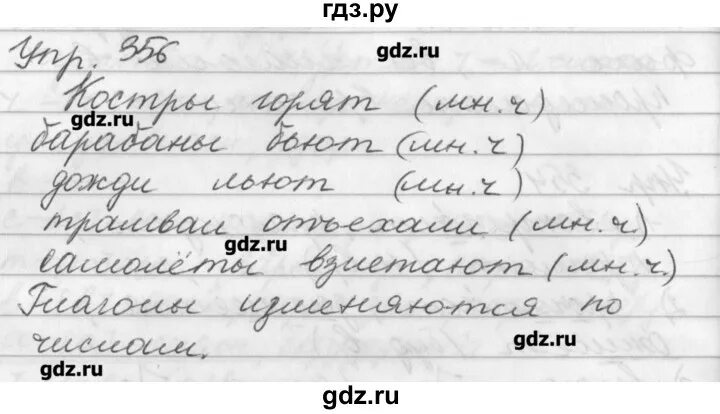 гдз.ру
Упр. 356
gdz.ru
Костры горят (мн.ч)
gdz.ru
gdz.ru
барабаны бьют (мн.ч)
дожди льют (мн.ч)
трамваи отъехали (мн.ч.)
gdz.ru
самолёты взлетают (мн.ч.)
Глаголы изменяются по
числам.
gdz.ru
gdz.ru
gdz.ru